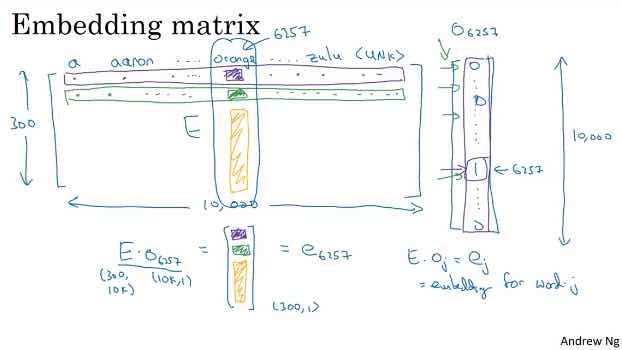 Embedding matrix
6257
O6257
a aaron ..... orange .... zulu <UNK>
300
E
10,000
1 ← 6257
10,000
E · O6257 = = e6257
(300, 10K) (10K,1)
(300,1)
E · Oj = ej
= embedding for word j
Andrew Ng